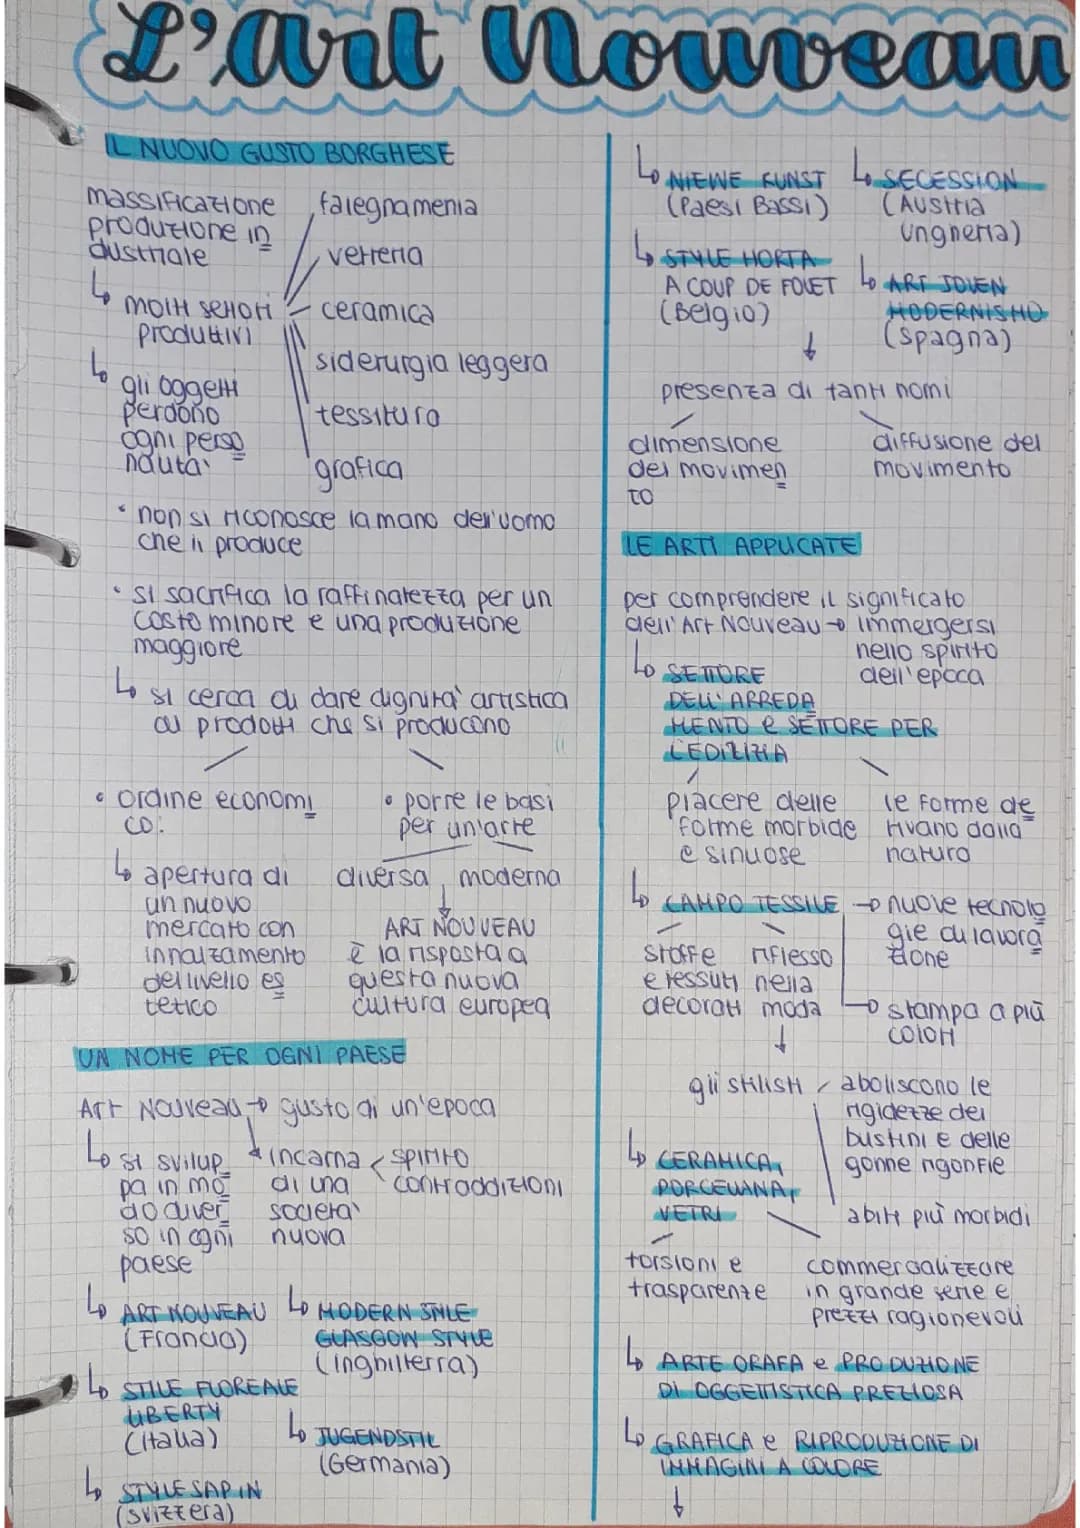 L'art Nouveau
IL NUOVO GUSTO BORGHESE
massificazione
produzione in
dustriale
molti settori
produttivi
falegnameria
vetreria
ceramica
siderurgia leggera
tessitura
grafica
gli oggetti
perdono
ogni perso
nalità
• non si riconosce la mano dell'uomo
che li produce
• si sacrifica la raffinatezza per un
costo minore e una produzione
maggiore
si cerca di dare dignità artistica
ai prodotti che si producono
• ordine economi
co:
apertura di
un nuovo
mercato con
innalzamento
del livello es
tetico
• porre le basi
per un'arte
diversa, moderna
ART NOUVEAU
è la risposta a
questa nuova
cultura europea
UN NOME PER OGNI PAESE
Art Nouveau → gusto di un'epoca
si svilup
pa in mo
do diver
so in ogni
paese
incarna
di una
società
nuova
spirito
contraddizioni
ART NOUVEAU
(Francia)
MODERN STYLE
GLASGOW STYLE
(Inghilterra)
STILE FLOREALE
LIBERTY
(Italia)
JUGENDSTIL
(Germania)
STYLE SAPIN
(svizzera)
NIEWE KUNST
(Paesi Bassi)
SECESSION
(Austria
Ungheria)
STYLE HORTA
A COUP DE FOUET
(Belgio)
ART JOVEN
MODERNISMO
(Spagna)
presenza di tanti nomi
dimensione
del movimen
to
diffusione del
movimento
LE ARTI APPLICATE
per comprendere il significato
dell'Art Nouveau → immergersi
nello spirito
dell'epoca
SETTORE
DELL'ARREDA
MENTO e SETTORE PER
L'EDILIZIA
piacere delle
forme morbide
e sinuose
le forme de
rivano dalla
natura
CAMPO TESSILE → nuove tecnolo
gie di lavora
zione
stampa a più
colori
stoffe
e tessuti
decorati
riflesso
nella
moda
gli stilisti
aboliscono le
rigidezze dei
bustini e delle
gonne rigonfie
abiti più morbidi
CERAMICA,
PORCELLANA,
VETRI
torsioni e
trasparenze
commercializzare
in grande serie e
prezzi ragionevoli
ARTE ORAFA e PRODUZIONE
DI OGGETTISTICA PREZIOSA
GRAFICA e RIPRODUZIONE DI
IMMAGINI A COLORE